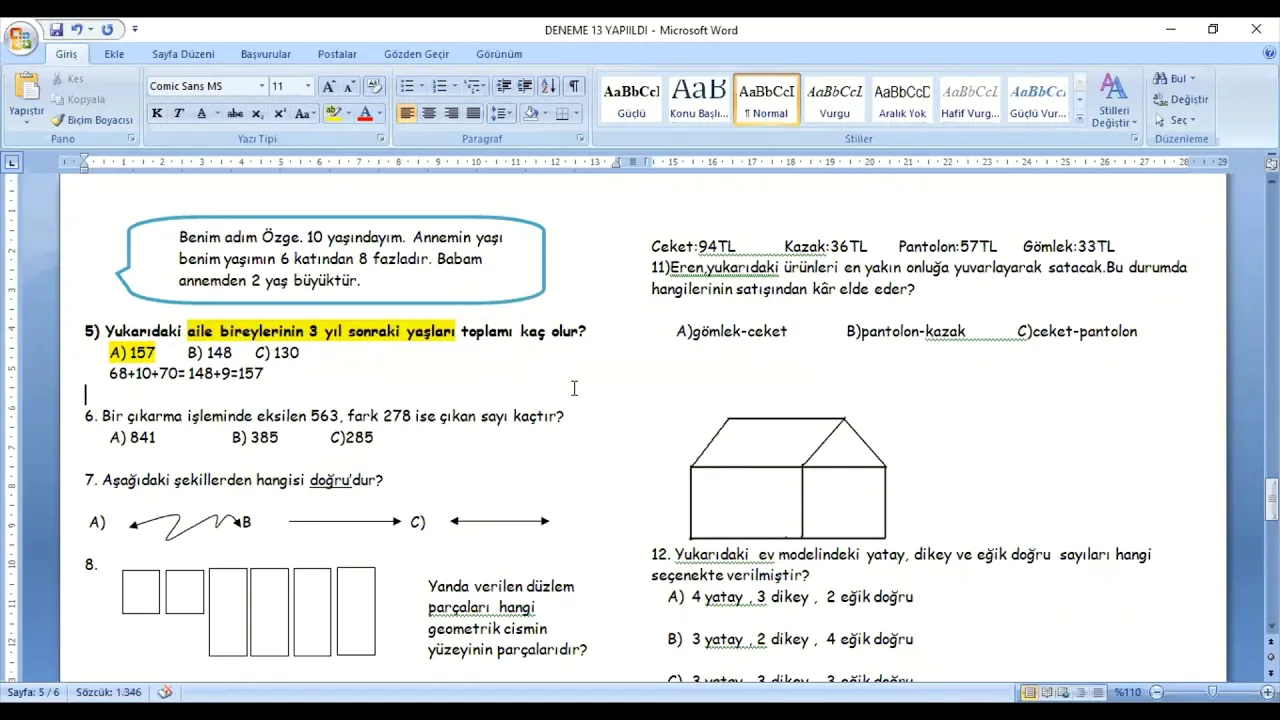 DENEME 13 YAPIILDI - Microsoft Word
Giriş Ekle Sayfa Düzeni Başvurular Postalar Gözden Geçir Görünüm
Yapıştır
Kes
Kopyala
Biçim Boyacısı
Pano
Comic Sans MS 11
K T A abc x₂ x² Aa
Yazı Tipi
Paragraf
AaBbCcI AaB AaBbCcI AaBbCcL AaBbCcD AaBbCcL AaBbCcL
Güçlü Konu Başlı... ¶ Normal Vurgu Aralık Yok Hafif Vurg... Güçlü Vur...
Stilleri Değiştir
Stiller
Bul
Değiştir
Seç
Düzenleme
1 2 3 4 5 6 7 8 9 10 11 12 13 15 16 17 18 19 20 21 22 23 24 25 26 27 28 29
Benim adım Özge. 10 yaşındayım. Annemin yaşı
benim yaşımın 6 katından 8 fazladır. Babam
annemden 2 yaş büyüktür.
5) Yukarıdaki aile bireylerinin 3 yıl sonraki yaşları toplamı kaç olur?
A) 157 B) 148 C) 130
68+10+70= 148+9=157
6. Bir çıkarma işleminde eksilen 563, fark 278 ise çıkan sayı kaçtır?
A) 841 B) 385 C)285
7. Aşağıdaki şekillerden hangisi doğru'dur?
A) B C)
8.
Yanda verilen düzlem
parçaları hangi
geometrik cismin
yüzeyinin parçalarıdır?
Ceket:94TL Kazak:36TL Pantolon:57TL Gömlek:33TL
11)Eren,yukarıdaki ürünleri en yakın onluğa yuvarlayarak satacak.Bu durumda
hangilerinin satışından kâr elde eder?
A)gömlek-ceket B)pantolon-kazak C)ceket-pantolon
12. Yukarıdaki ev modelindeki yatay, dikey ve eğik doğru sayıları hangi
seçenekte verilmiştir?
A) 4 yatay , 3 dikey , 2 eğik doğru
B) 3 yatay , 2 dikey , 4 eğik doğru
C) 3 yatay , 3 dikey , 3 eğik doğru
Sayfa: 5 / 6 Sözcük: 1.346 %110